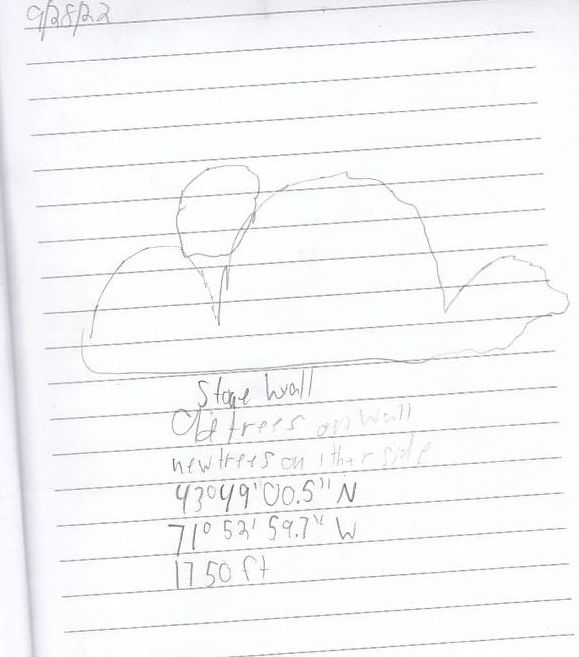 9/28/22
Stone wall
Old trees on wall
new trees on other side
43°49'00.5" N
71° 53' 59.7" W
1750 ft